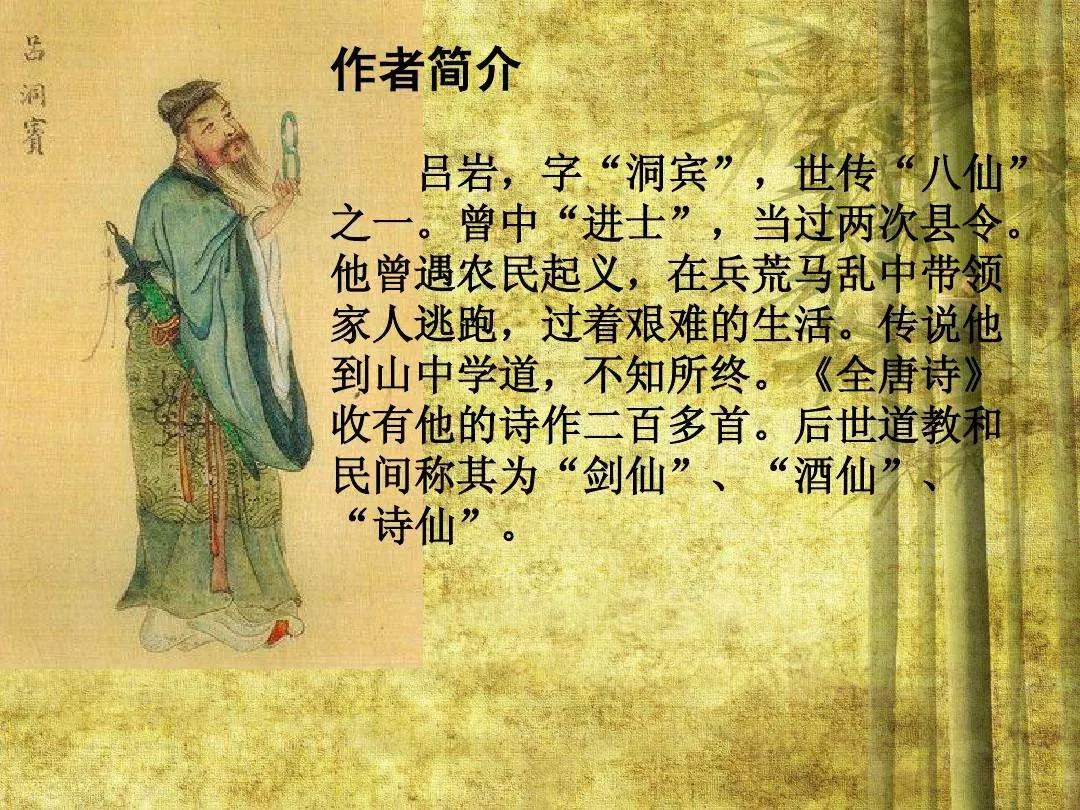 吕洞賓
作者简介
吕岩，字“洞宾”，世传“八仙”
之一。曾中“进士”，当过两次县令。
他曾遇农民起义，在兵荒马乱中带领
家人逃跑，过着艰难的生活。传说他
到山中学道，不知所终。《全唐诗》
收有他的诗作二百多首。后世道教和
民间称其为“剑仙”、“酒仙”、
“诗仙”。